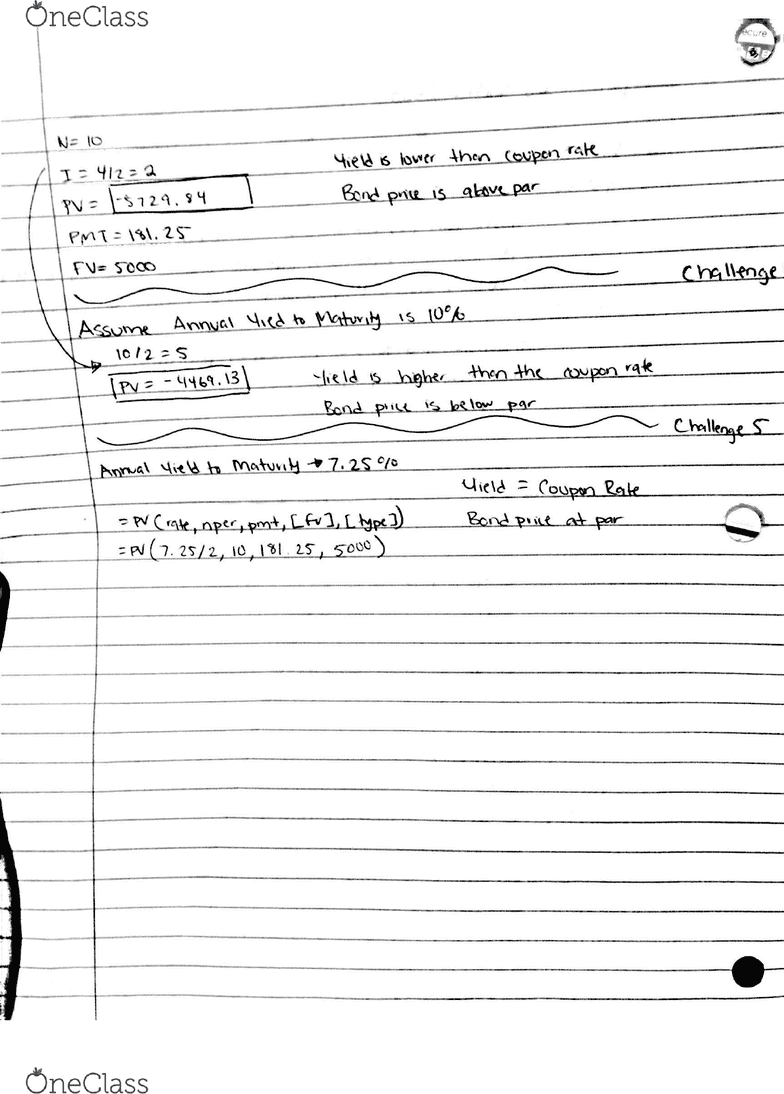 OneClass
ecure
N= 10
I = 4/2 = 2
Yield is lower then coupon rate
PV = -5729.84
Bond price is above par
PMT = 181.25
FV= 5000
Challenge
Assume Annual Yied to Maturity is 10%
10/2 = 5
PV = -4469.13
Yield is higher then the coupon rate
Bond price is below par
Challenge 5
Annual Yield to Maturity → 7.25%
Yield = Coupon Rate
=PV(rate, nper, pmt, [fv], [type])
Bond price at par
=PV(7.25/2, 10, 181.25, 5000)
OneClass